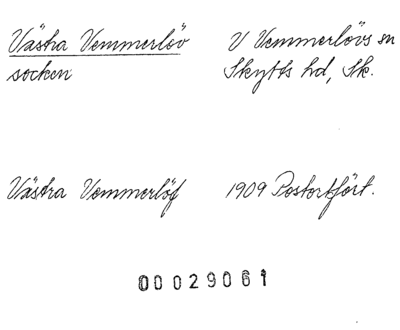 Västra Vemmerlöv V Vemmerlövs sn
socken Skytts hd, Sk.
Västra Vemmerlöf 1909 Postortfört.
00029061